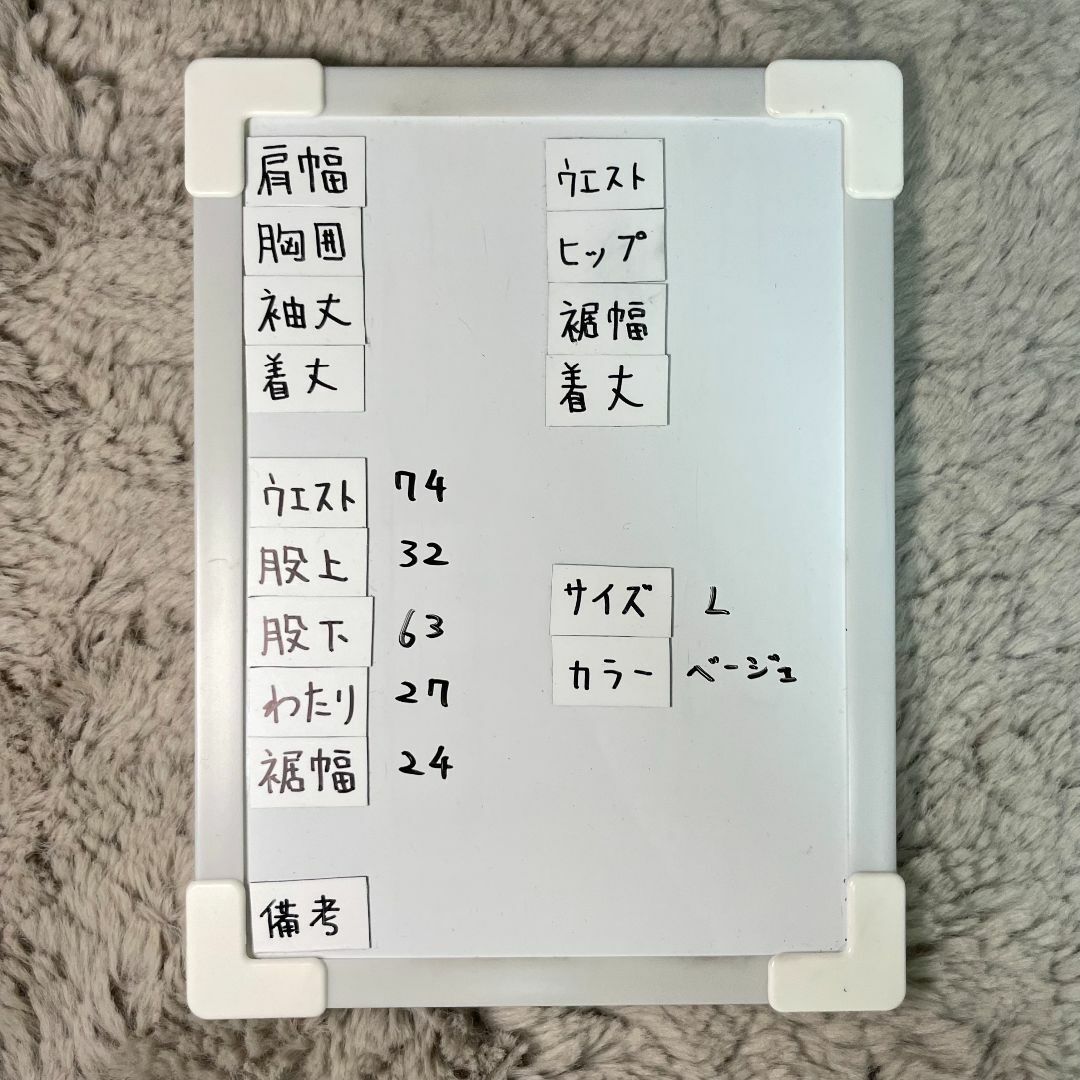 肩幅
胸囲
袖丈
着丈
ウエスト
ヒップ
裾幅
着丈
ウエスト 74
股上 32
股下 63
わたり 27
裾幅 24
サイズ L
カラー ベージュ
備考